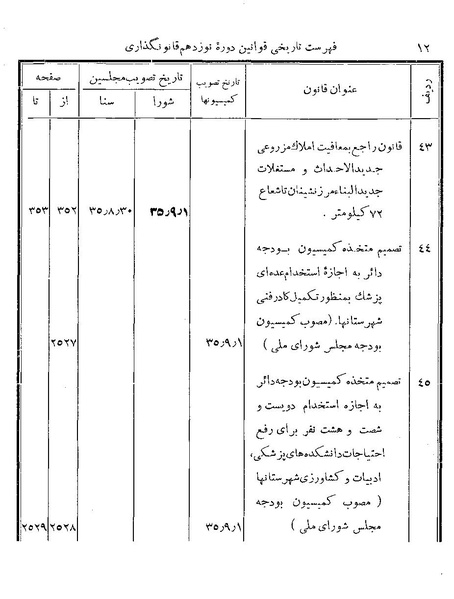 ۱۲ فهرست تاریخی قوانین دوره نوزدهم قانونگذاری
ردیف عنوان قانون تاریخ تصویب کمیسیونها تاریخ تصویب مجلسین صفحه
شورا سنا از تا
۴۳ قانون راجع بمعافیت املاک مزروعی
جدیدالاحداث و مستغلات
جدیدالبناء مرزنشینان تاشعاع
۷۲ کیلومتر . ۳۵٫۹٫۱ ۳۵٫۸٫۳۰ ۳۵۲ ۳۵۳
۴۴ تصمیم متخذه کمیسیون بودجه
دائر به اجازهٔ استخدام عده‌ای
پزشک بمنظور تکمیل کادر فنی
شهرستانها. (مصوب کمیسیون
بودجه مجلس شورای ملی ) ۳۵٫۹٫۱ ۲۵۲۷
۴۵ تصمیم متخذه کمیسیون بودجه دائر
به اجازه استخدام دویست و
شصت و هشت نفر برای رفع
احتیاجات دانشکده‌های پزشکی،
ادبیات و کشاورزی شهرستانها
( مصوب کمیسیون بودجه
مجلس شورای ملی ) ۳۵٫۹٫۱ ۲۵۲۸ ۲۵۲۹